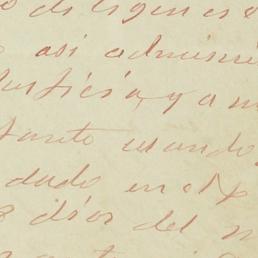 diligencias
así adminis
Justicia, y a m
tanto cuando
dado en el
dias del m